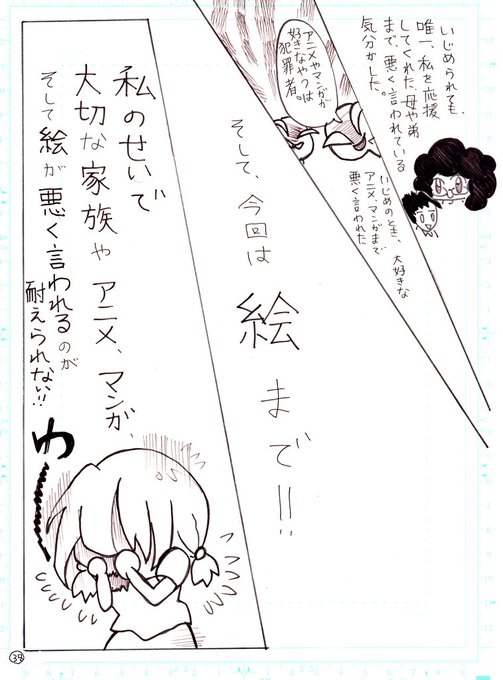 いじめられても、
唯一、私を応援
してくれた、母や弟
まで、悪く言われている
気分がした。
アニメやマンガが
好きなやつは
犯罪者。
いじめのとき、大好きな
アニメ、マンガまで
悪く言われた
そして、今回は
絵まで!!
私のせいで
大切な家族や アニメ、マンガ、
そして絵が悪く言われるのが
耐えられない!!
わーー
39